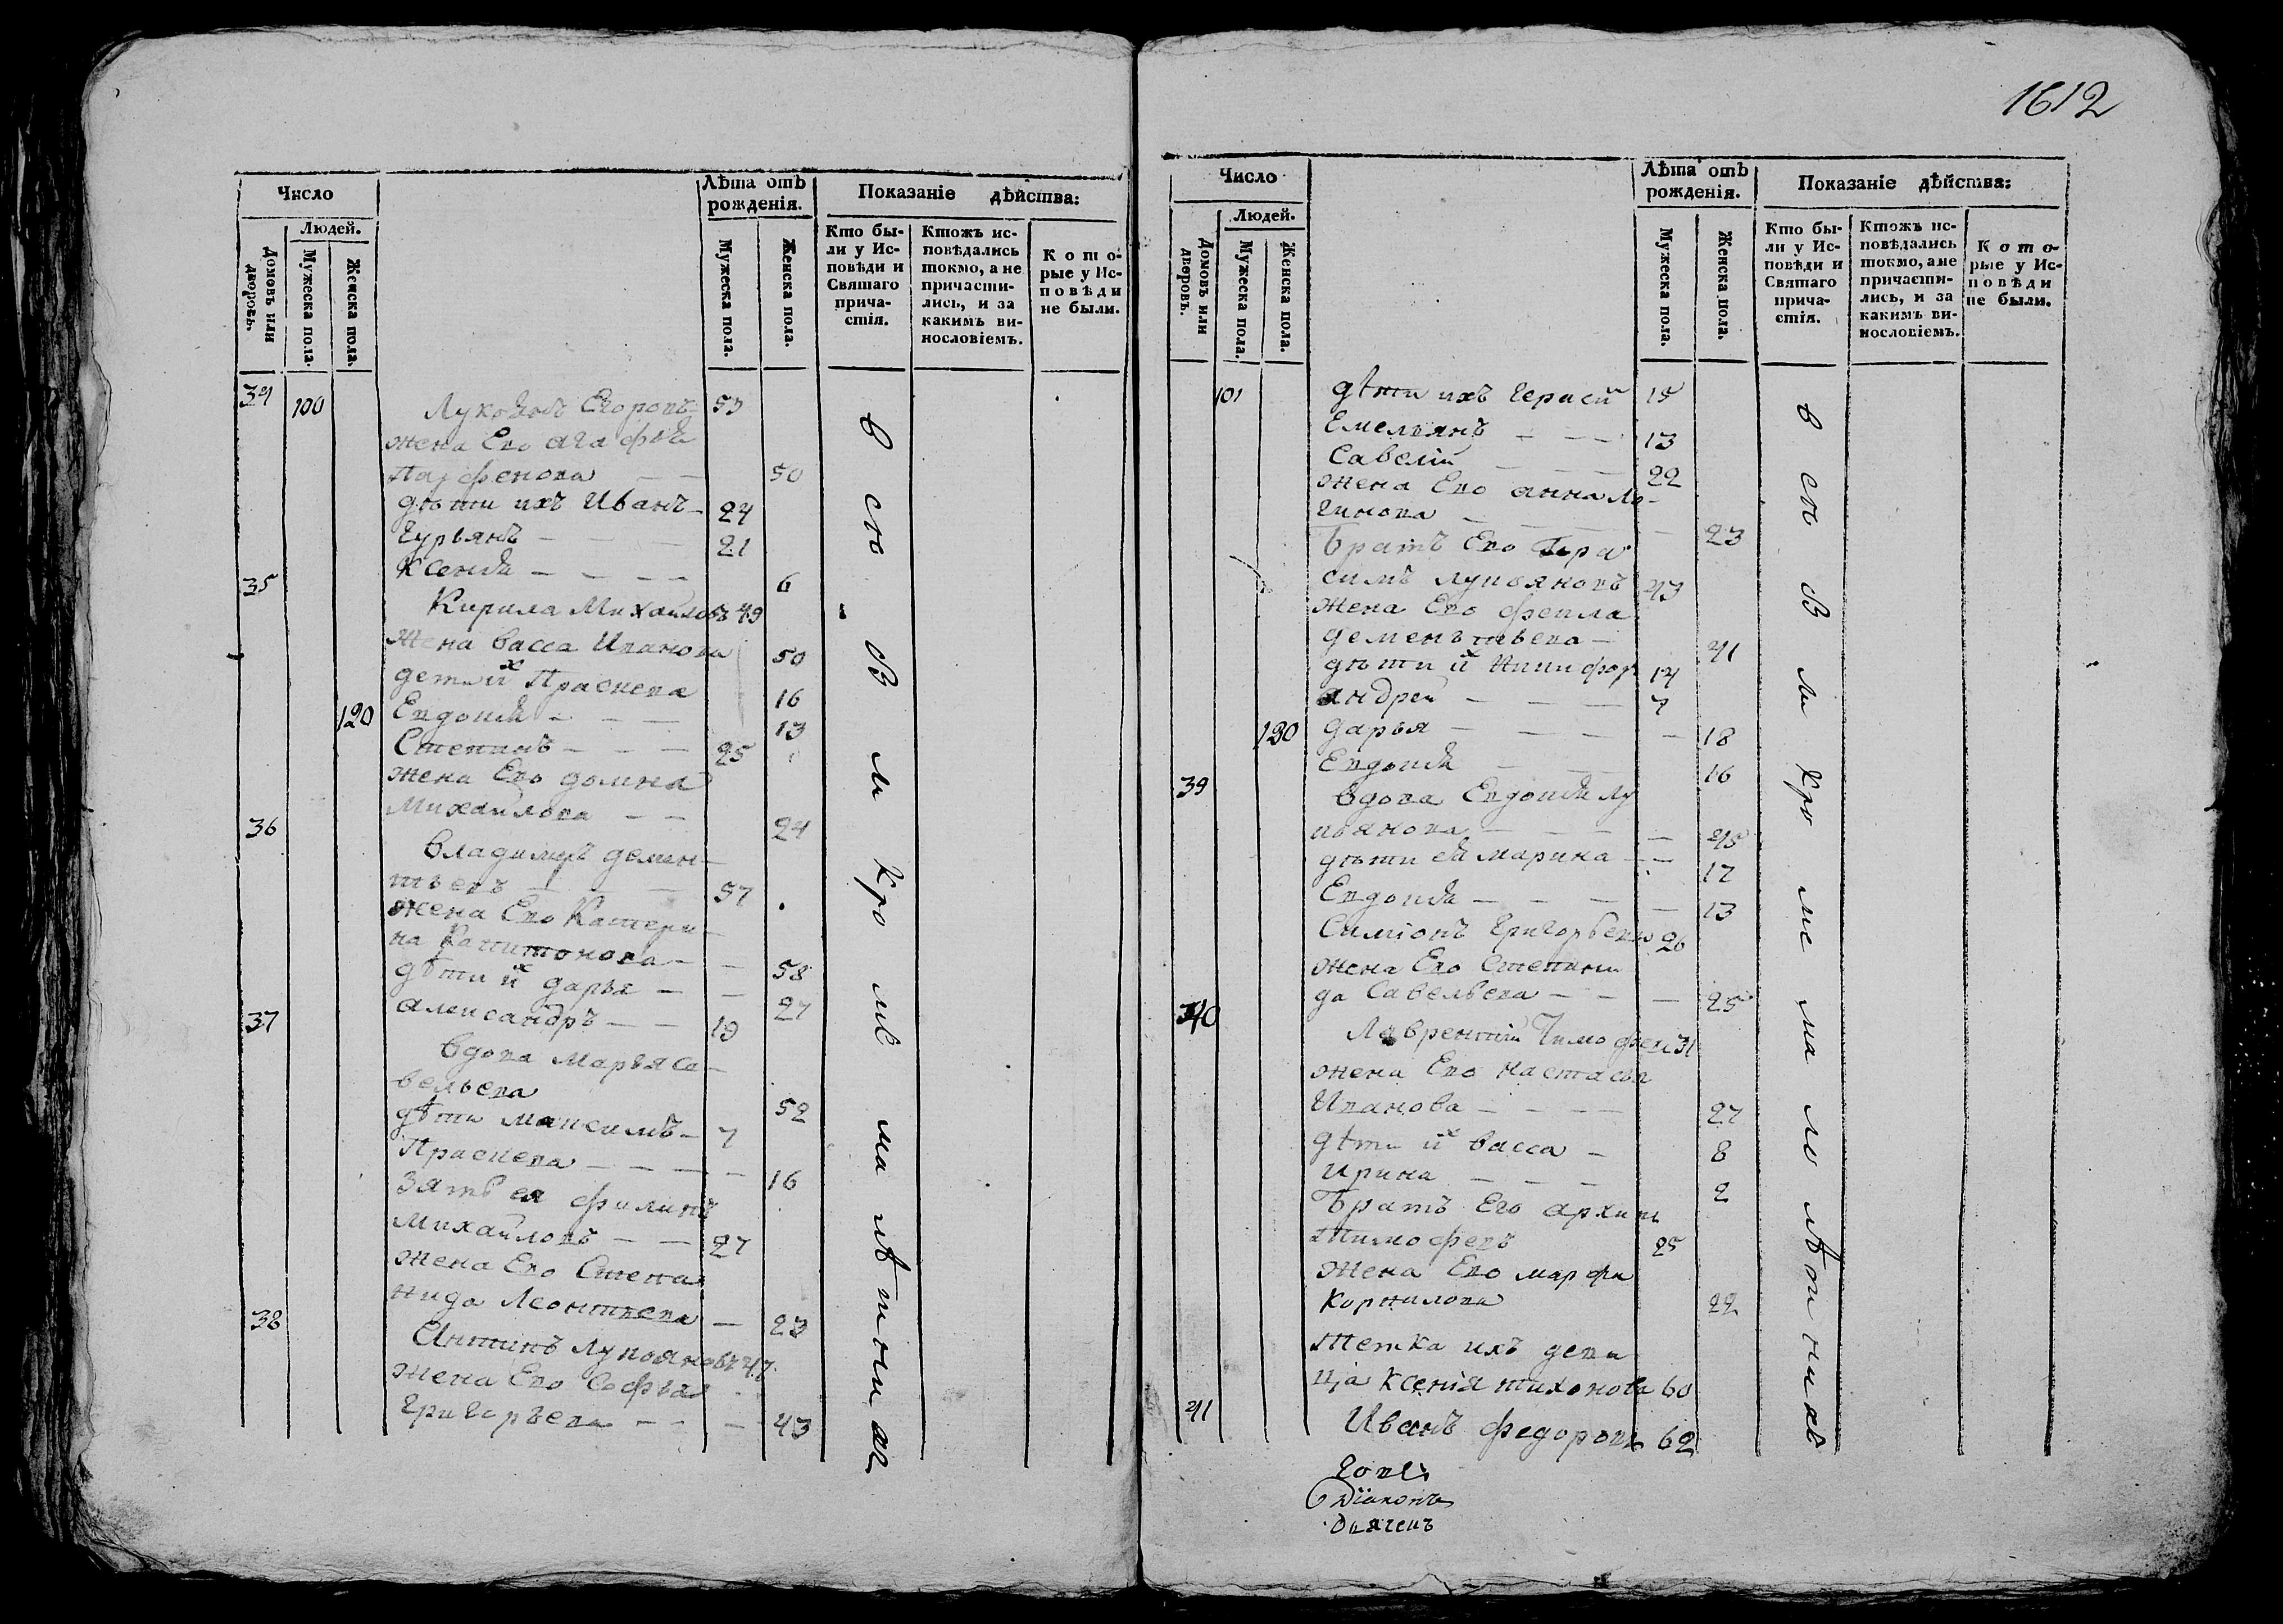 1612
Число
Людей.
Домовъ или дворовъ.
Мужеска пола.
Женска пола.
Лѣта отъ рожденія.
Мужеска пола.
Женска пола.
Показаніе дѣйства:
Кто бы-
ли у Ис-
повѣди и
Святаго
прича-
стія.
Ктожъ ис-
повѣдались
токмо, а не
причасти-
лись, и за
какимъ ви-
нословіемъ.
Кото-
рые у Ис-
повѣди
не были.
34 100 Егоровъ 53
жена Его агафія
Парфенова — 50
дѣти ихъ Иванъ — 24
Гурьянъ — — — 21
Ксенія — — — — 6
35 Кирила Михайловъ 49
Жена васса Иванова 50
дети их Праскева 16
120 Евдокія — — — 13
Степанъ — — — 25
жена Его домна
Михайлова — — 24
36 владимеръ демен-
тьевъ — — — 57
жена Его Катери-
на Капитонова — — 58
дѣти их дарья — — 27
александръ — — 19
37 вдова Марья са-
вельева 52
дѣти максимъ — 7
Праскева — — — — 16
Зять ея филипъ
михайловъ — — 27
жена Его Степа
нида Леонтьева — 23
38 Антипъ лукьяновъ 47
жена Его Софья
григорьева — — — 43
всѣ кромѣ
Число
Людей.
Домовъ или дворовъ.
Мужеска пола.
Женска пола.
Лѣта отъ рожденія.
Мужеска пола.
Женска пола.
Показаніе дѣйства:
Кто бы-
ли у Ис-
повѣди и
Святаго
прича-
стія.
Ктожъ ис-
повѣдались
токмо, а не
причасти-
лись, и за
какимъ ви-
нословіемъ.
Кото-
рые у Ис-
повѣди
не были.
101 дѣти ихъ 15
Емельянъ — — — 13
Савелій — — — 22
жена Его анна ло-
гинова — — 23
братъ Его Гера
симъ лукьяновъ 43
жена Его фекла
дементьева — 41
дѣти их Никифор 14
андрей — — — 7
130 дарья — — — — 18
Евдокія — — 16
39 вдова Евдокія лу
кьянова — — — — 45
дѣти ея марина — — 17
Евдокія — — — — 13
Симіонъ григорьевъ 26
жена Его Степани
да Савельева — — — 25
40 Лаврентій Тимофеев 31
жена Его настасья
Иванова — — — — 27
дѣти их васса — 8
ирина — — — 2
братъ Его архипъ
тимофевъ 25
жена Его марфа
Корнилова 22
тетка ихъ деви
ца Ксенія тихонова 60
41 Иванъ федоровъ 62
Діаконъ